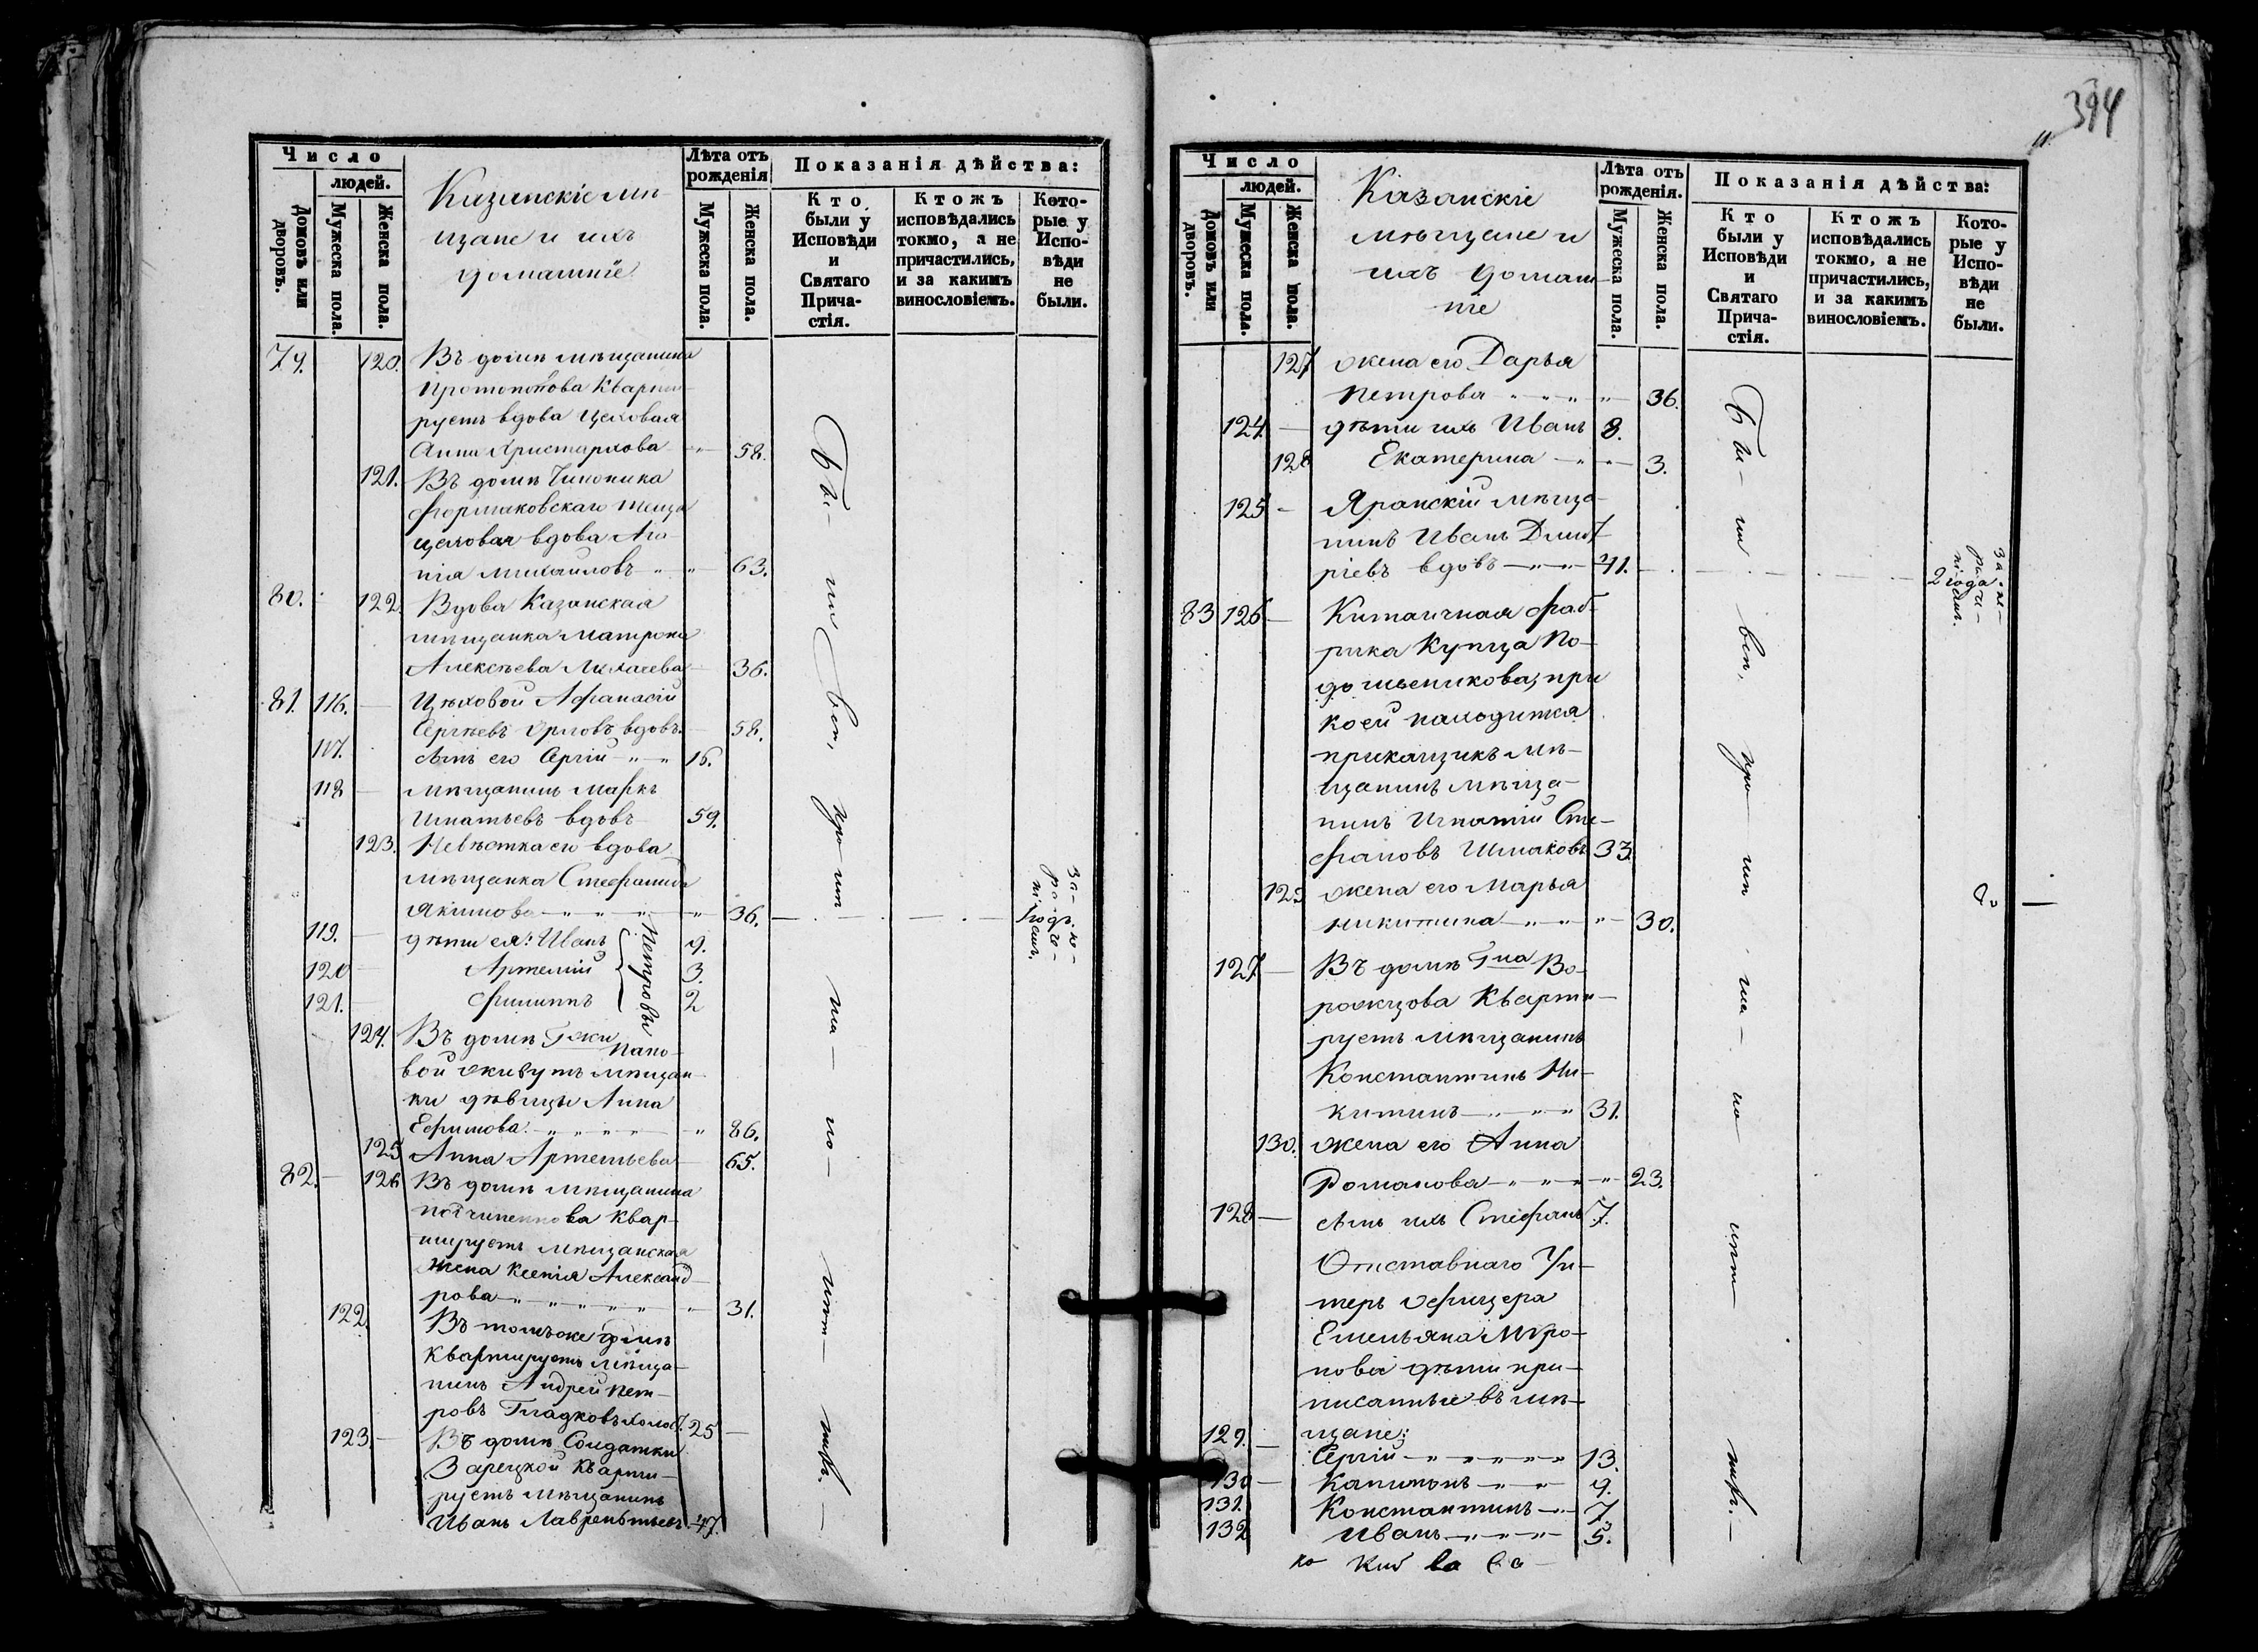 Число
людей.
Домовъ или дворовъ.
Мужеска пола.
Женска пола.
Казанскіе мѣ-
щане и ихъ
домашніе
Лѣта отъ
рожденія
Мужеска пола.
Женска пола.
Показанія дѣйства:
Кто
были у
Исповѣди
и
Святаго
Прича-
стія.
Ктожъ
исповѣдались
токмо, а не
причастились,
и за какимъ
винословіемъ.
Кото-
рые у
Испо-
вѣди
не
были.
79. 120. Въ домѣ мѣщанина
Протопопова кварти-
руетъ вдова цеховая
Анна Христархова " 58.
121. Въ домѣ Чиновника
Формаковскаго теща
цеховая вдова Ага-
пія Михайловъ " " 63.
80. 122. Вдова Казанская
мѣщанка Матрона
Алексѣева Лихачева 36.
81. 116. Цѣховой Афанасій
Сергѣевъ Орловъ вдовъ. 58.
117. Сынъ его Сергій " " 16.
118 Мѣщанинъ Маркъ
Игнатьевъ вдовъ 59.
123. Невѣстка его вдова
мѣщанка Стефанида
Якимова " " " " 36.
119. дѣти ея: Иванъ 9.
120 Артемій 3.
121. Филиппъ 2
Петровы
124. Въ домѣ Гжи Папо-
вой живутъ мѣщан-
ки дѣвицы Анна
Ефимова " " " " " 86.
125 Анна Артемьева 65.
82. 126 Въ домѣ мѣщанина
квар-
тируетъ мѣщанская
жена Ксенія Александ-
рова " " " " " " 31.
122. Въ томъ же домѣ
квартируетъ мѣща-
нинъ Андрей Пет-
ровъ Гладковъ холос. 25
123. Въ домѣ Солдатки
Зарецкой кварти-
руетъ мѣщанинъ
Иванъ Лаврентьевъ 47.
Бы- ли
за не-
ра-де-
ніемъ.
1 годъ
394
Число
людей.
Домовъ или дворовъ.
Мужеска пола.
Женска пола.
Казанскіе
мѣщане и
ихъ домаш-
ніе
Лѣта отъ
рожденія.
Мужеска пола.
Женска пола.
Показанія дѣйства:
Кто
были у
Исповѣди
и
Святаго
Прича-
стія.
Ктожъ
исповѣдались
токмо, а не
причастились,
и за какимъ
винословіемъ.
Кото-
рые у
Испо-
вѣди
не
были.
127 жена его Дарья
Петрова " " " " 36.
124 дѣти ихъ Иванъ 8.
128 Екатерина " " 3.
125 Яранскій мѣща-
нинъ Иванъ Дмит-
ріевъ вдовъ " " 41.
2 года
83 126 Китаичная фаб-
рика Купца По-
дошьеникова, при
коей находится
прикащикъ мѣ-
щанинъ мѣща-
нинъ Игнатій Сте-
фановъ Шмаковъ 33.
129 жена его Марья
Никитина " " " 30.
127. Въ домѣ Гна Во-
рожцова кварти-
руетъ мѣщанинъ
Константинъ Ни-
китинъ " " " 31.
130. жена его Анна
Романова " " " " 23.
128 сынъ ихъ Стефанъ 7.
Отставнаго Ун-
теръ офицера
Емельяна Миро-
нова дѣти при-
писанные въ мѣ-
щане:
129. Сергій " " " " " 13.
130 Капитонъ " " 9.
131. Константинъ " 7
132 Иванъ " " " " 5.